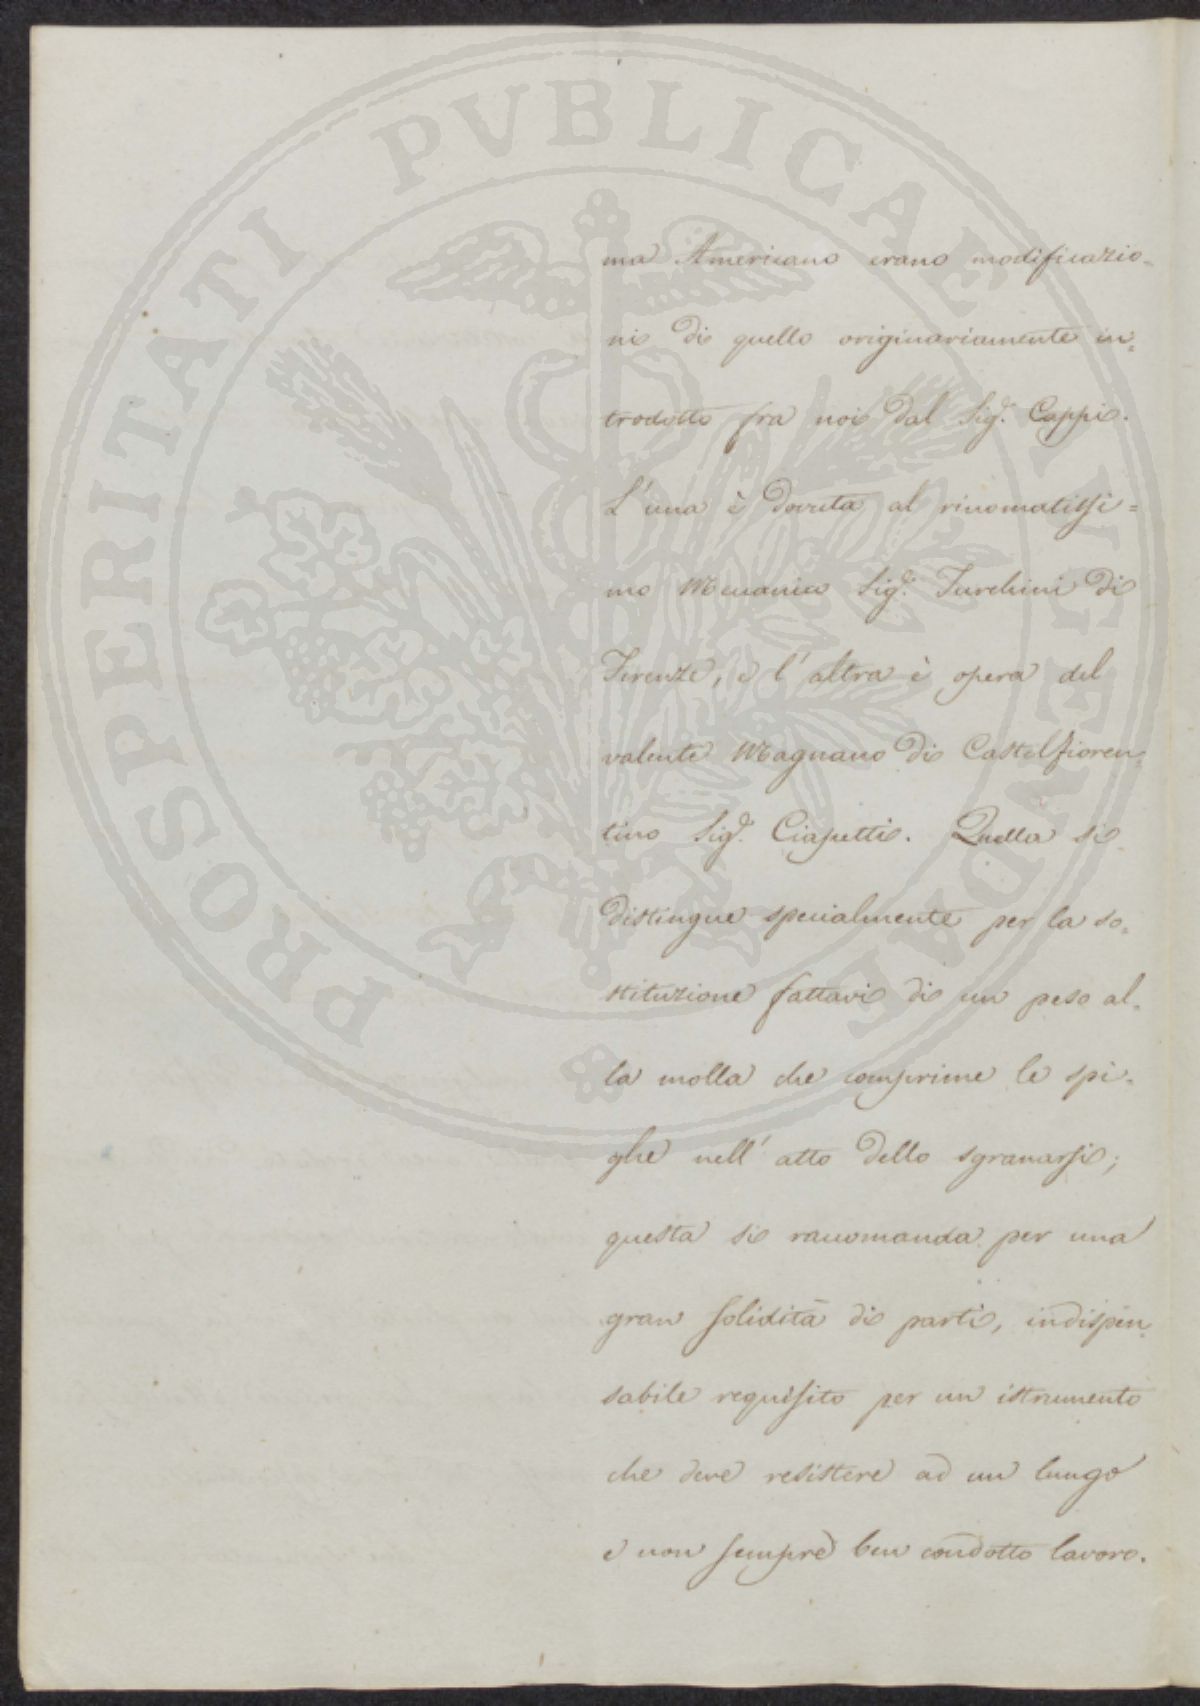 PROSPERITATI PVBLICAE AVGENDAE
ma Americano erano modificazio-
ni di quello originariamente in-
trodotto fra noi dal Sig.r Cappi.
L'una è dovuta al rinomatissi=
mo Meccanico Sig.r Turchini di
Firenze, e l'altra è opera del
valente Magnano di Castelfioren-
tino Sig.r Ciapetti. Quella si
distingue specialmente per la so-
stituzione fattavi di un peso al-
la molla che comprime le spi-
ghe nell'atto dello sgranarsi;
questa si raccomanda per una
gran solidità di parti, indispen-
sabile requisito per un istrumento
che deve resistere ad un lungo
e non sempre ben condotto lavoro.